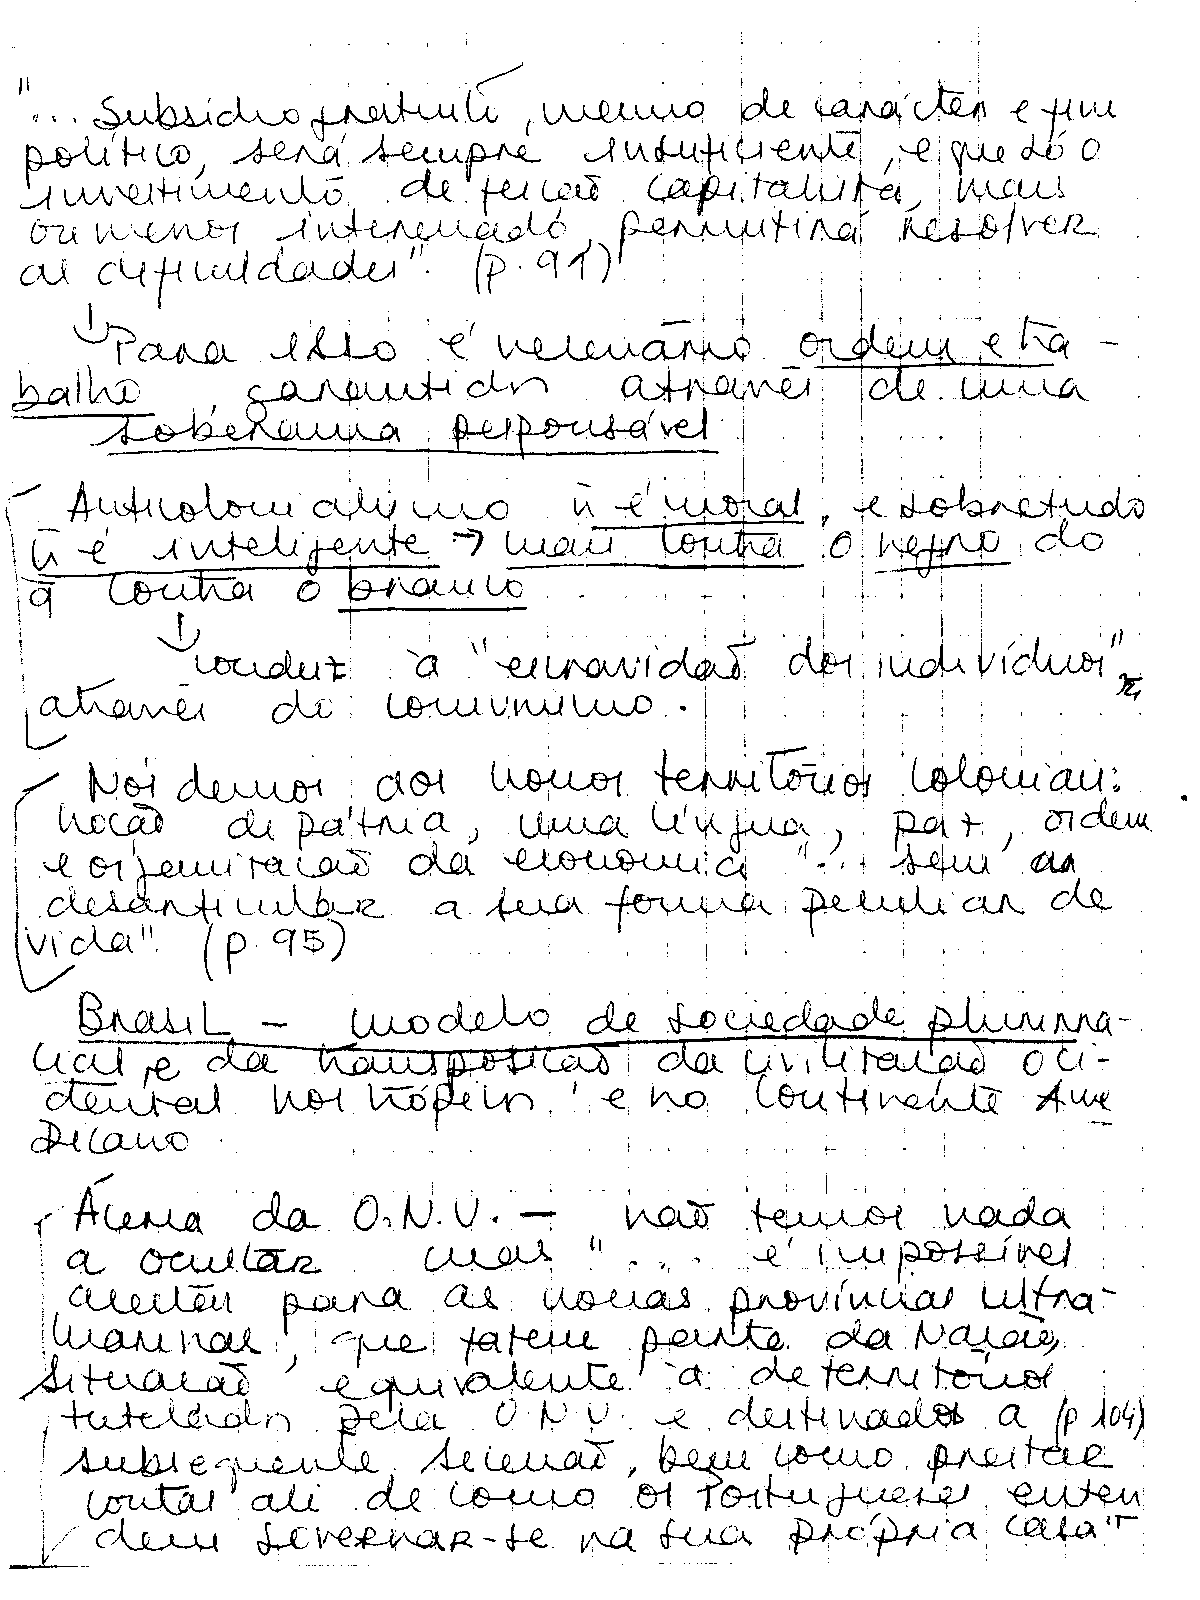 "... Subsídio gratuito, mesmo de carácter e fim
político, será sempre insuficiente, e que só o
investimento de feição capitalista, mais
ou menos interessado, permitirá resolver
as dificuldades". (p. 91)
↓ Para isso é necessário ordem e tra-
balho, garantidos através de uma
soberania responsável
Anticolonialismo ñ é moral, e sobretudo
ñ é inteligente → mais contra o negro do
q contra o branco
↓ conduz à "escravidão dos indivíduos"
através do comunismo.
Nós demos aos nossos territórios coloniais:
noção de pátria, uma língua, paz, ordem
e organização da economia "... sem
desarticular a sua forma peculiar de
vida". (p. 95)
Brasil - modelo de sociedade plurirra-
cial e da transposição da civilização oci-
dental nos trópicos e no continente Ame
ricano
Acerca da O.N.U. - não temos nada
a ocultar mas "... é impossível
aceitar para as nossas províncias ultra-
marinas, que fazem parte da Nação,
situação equivalente à de territórios
tutelados pela O.N.U. e destinados a (p 104)
subsequente secessão, bem como prestar
contas ali de como os Portugueses enten
dem governar-se na sua própria casa"